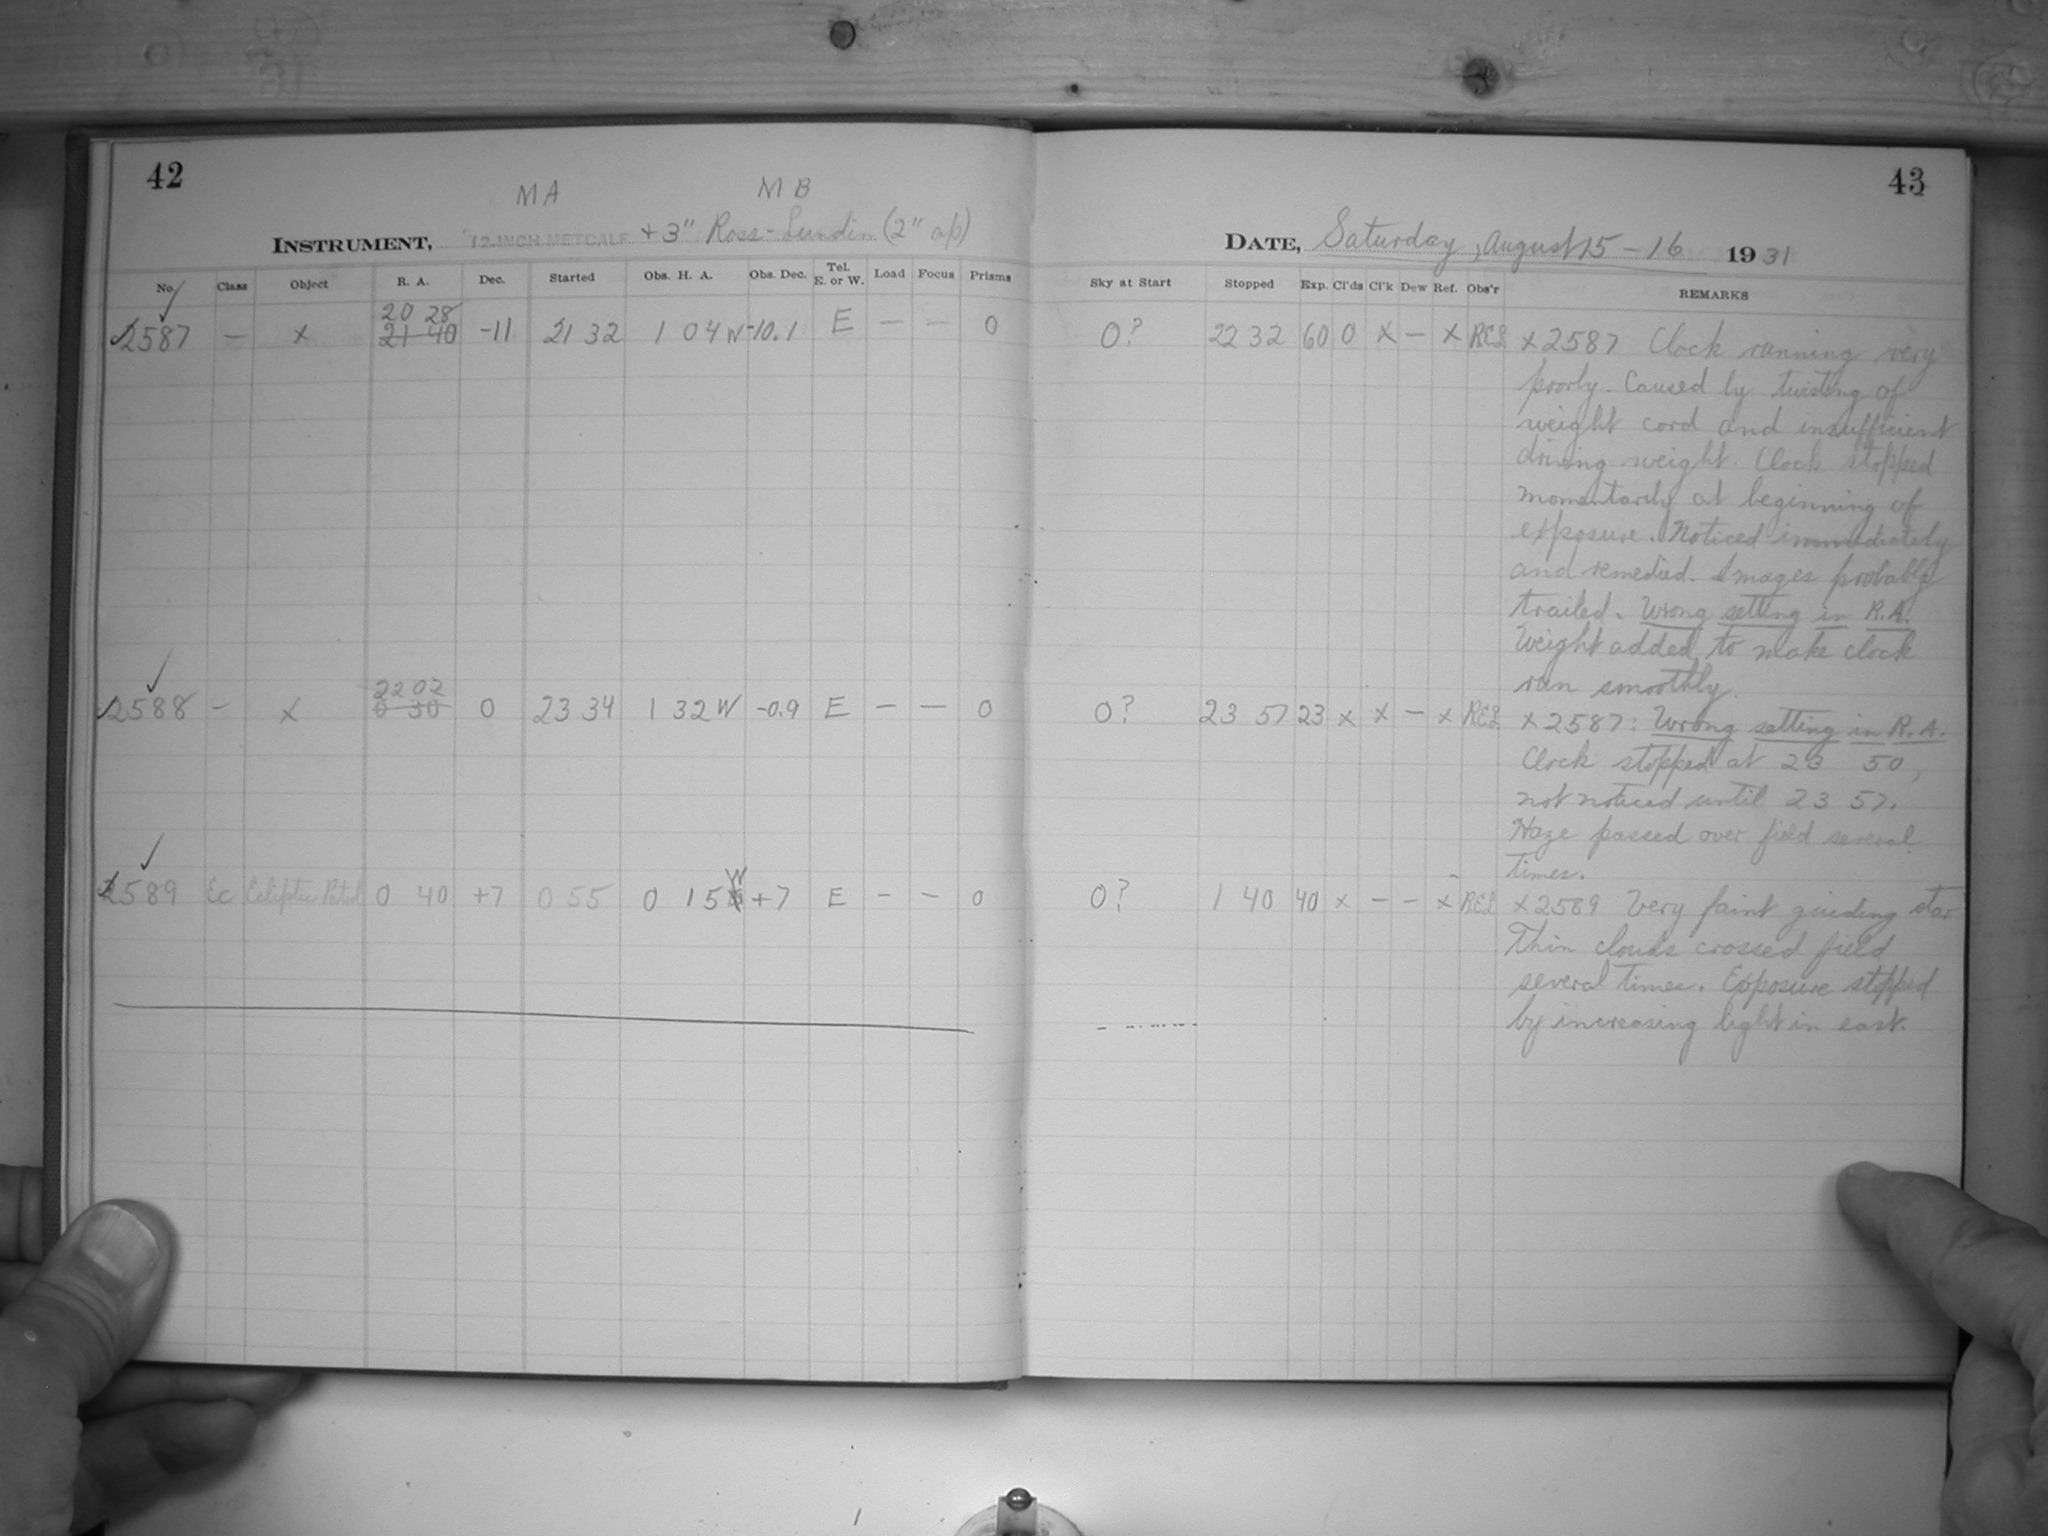 42
MA MB
INSTRUMENT, 12-INCH METCALF + 3" Ross-Lundin (2" ap)
No. Class Object R. A. Dec. Started Obs. H. A. Obs. Dec. Tel. E. or W. Load Focus Prisms
20 28
2587 — x 21 40 -11 21 32 1 04 W -10.1 E — — 0
22 02
2588 - x 0 30 0 23 34 1 32 W -0.9 E — — 0
2589 Ec Ecliptic Patrol 0 40 +7 0 55 0 15 W +7 E - - 0
43
DATE, Saturday, August 15-16 1931
Sky at Start Stopped Exp. Cl'ds Cl'k Dew Ref. Obs'r REMARKS
0? 22 32 60 0 x — x REL x 2587 Clock running very
poorly. Caused by twisting of
weight cord and insufficient
driving weight. Clock stopped
momentarily at beginning of
exposure. Noticed immediately
and remedied. Images probably
trailed. Wrong setting in R.A.
Weight added to make clock
run smoothly.
0? 23 57 23 x x — x REL x 2587: Wrong setting in R.A.
Clock stopped at 23 50,
not noticed until 23 57.
Haze passed over field several
times.
0? 1 40 40 x - - x REL x 2589 Very faint guiding star
Thin clouds crossed field
several times. Exposure stopped
by increasing light in east.